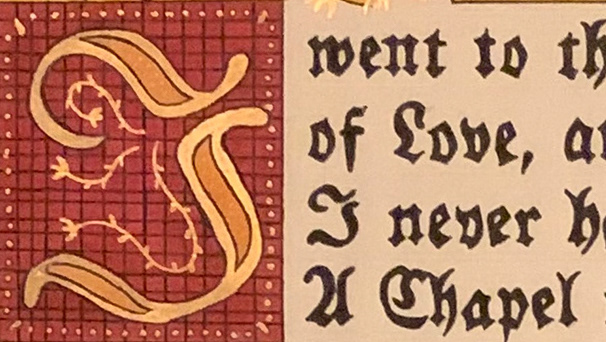 I went to th
of Love, an
I never h
A Chapel